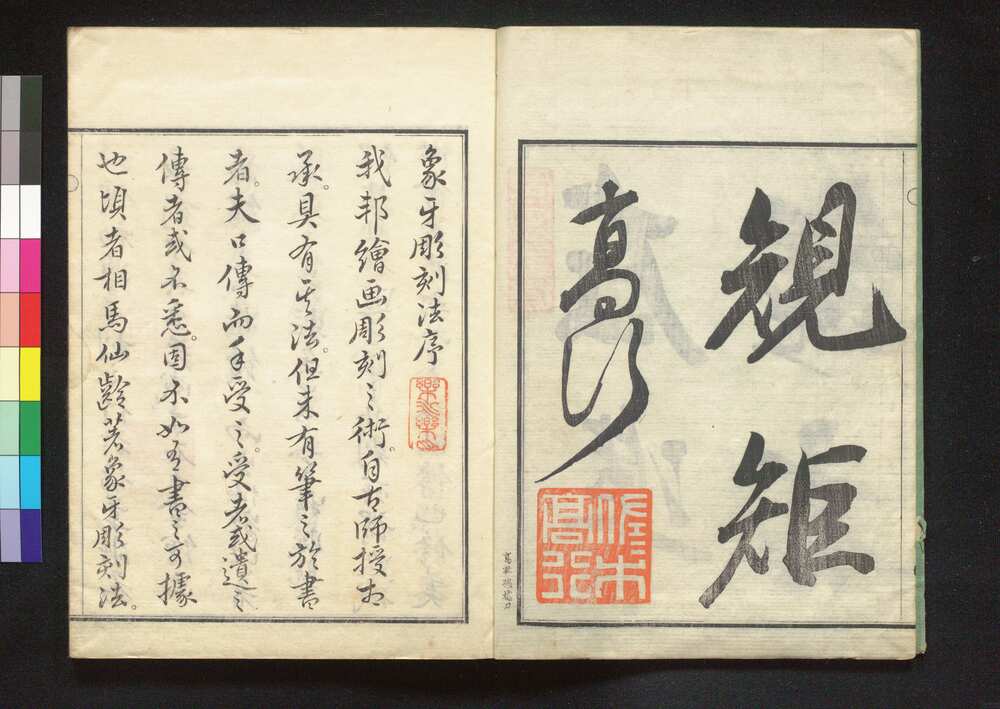 䂓矩
高行
佐〻木高行
象牙彫刻法序
我邦繪画彫刻之術。自古師授相
承。具有其法。但未有筆之於書
者。夫口傳而手受之。受者或遺之
傳者或不悉。固不如有書之可據
也頃者相馬仙齡著象牙彫刻法。